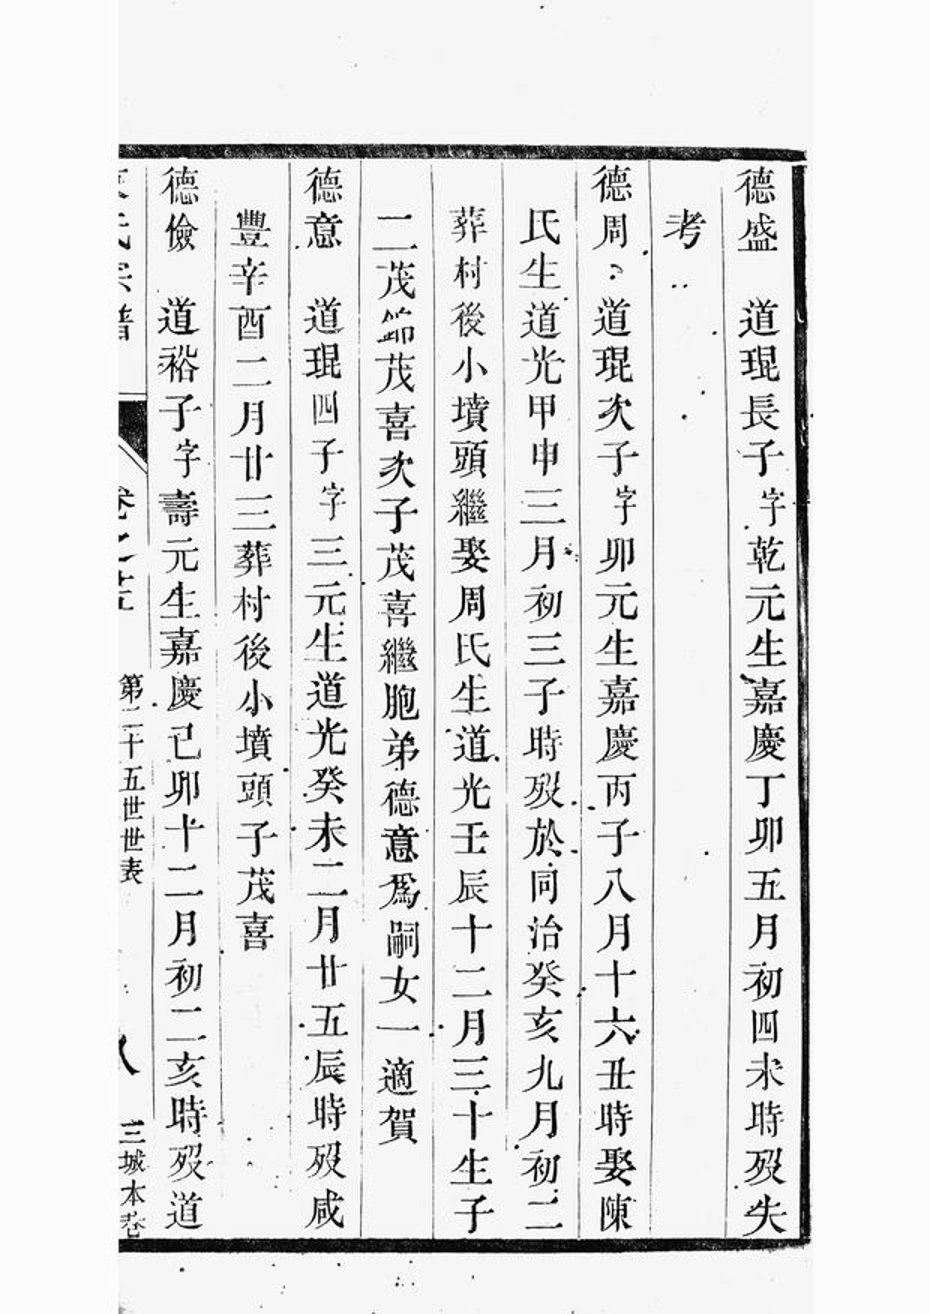 德盛 道琨長子字乾元生嘉慶丁卯五月初四未時歿失
考
德周 道琨次子字卯元生嘉慶丙子八月十六丑時娶陳
氏生道光甲申三月初三子時歿於同治癸亥九月初二
葬村後小墳頭繼娶周氏生道光壬辰十二月三十生子
二茂錦茂喜次子茂喜繼胞弟德意爲嗣女一適賀
德意 道琨四子字三元生道光癸未二月廿五辰時歿咸
豐辛酉二月廿三葬村後小墳頭子茂喜
德儉 道裕子字壽元生嘉慶己卯十二月初二亥時歿道
氏宗譜 卷之 第二十五世世表 八 三城本卷